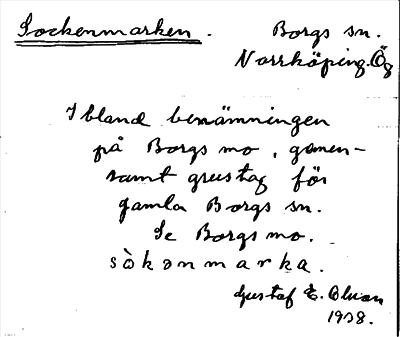 Sockenmarken.
Borgs sn.
Norrköping. Ög
Ibland benämningen
på Borgs mo, gemen-
samt grustag för
gamla Borgs sn.
Se Borgs mo.
sòkənmarka.
Gustaf E. Olson
1938.